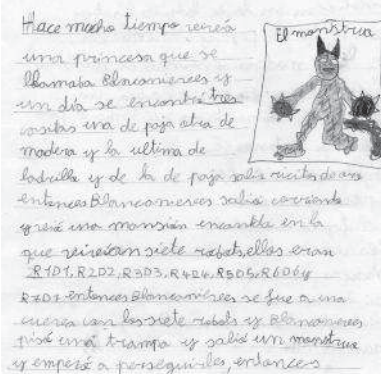 Hace mucho tiempo vivía
El monstruo
una princesa que se
llamaba Blancanieves y
un día se encontró tres
casitas una de paja otra de
madera y la ultima de
ladrillo y de la de paja salio ricitos de oro
entonces Blancanieves salió corriendo
y vió una mansión encantada en la
que vivian siete robots, ellos eran
R1D1, R2D2, R3D3, R4D4, R5D5, R6D6 y
R7D7 entonces Blancanieves se fue a una
cueva con los siete robots y Blancanieves
pisó una trampa y salió un monstruo
y empezó a perseguirles, entonces